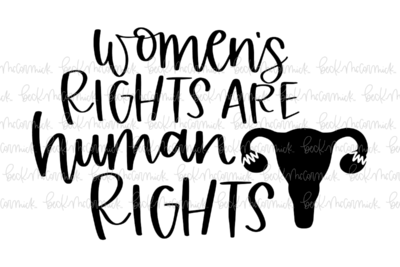 women's
RIGHTS ARE
human
RIGHTS